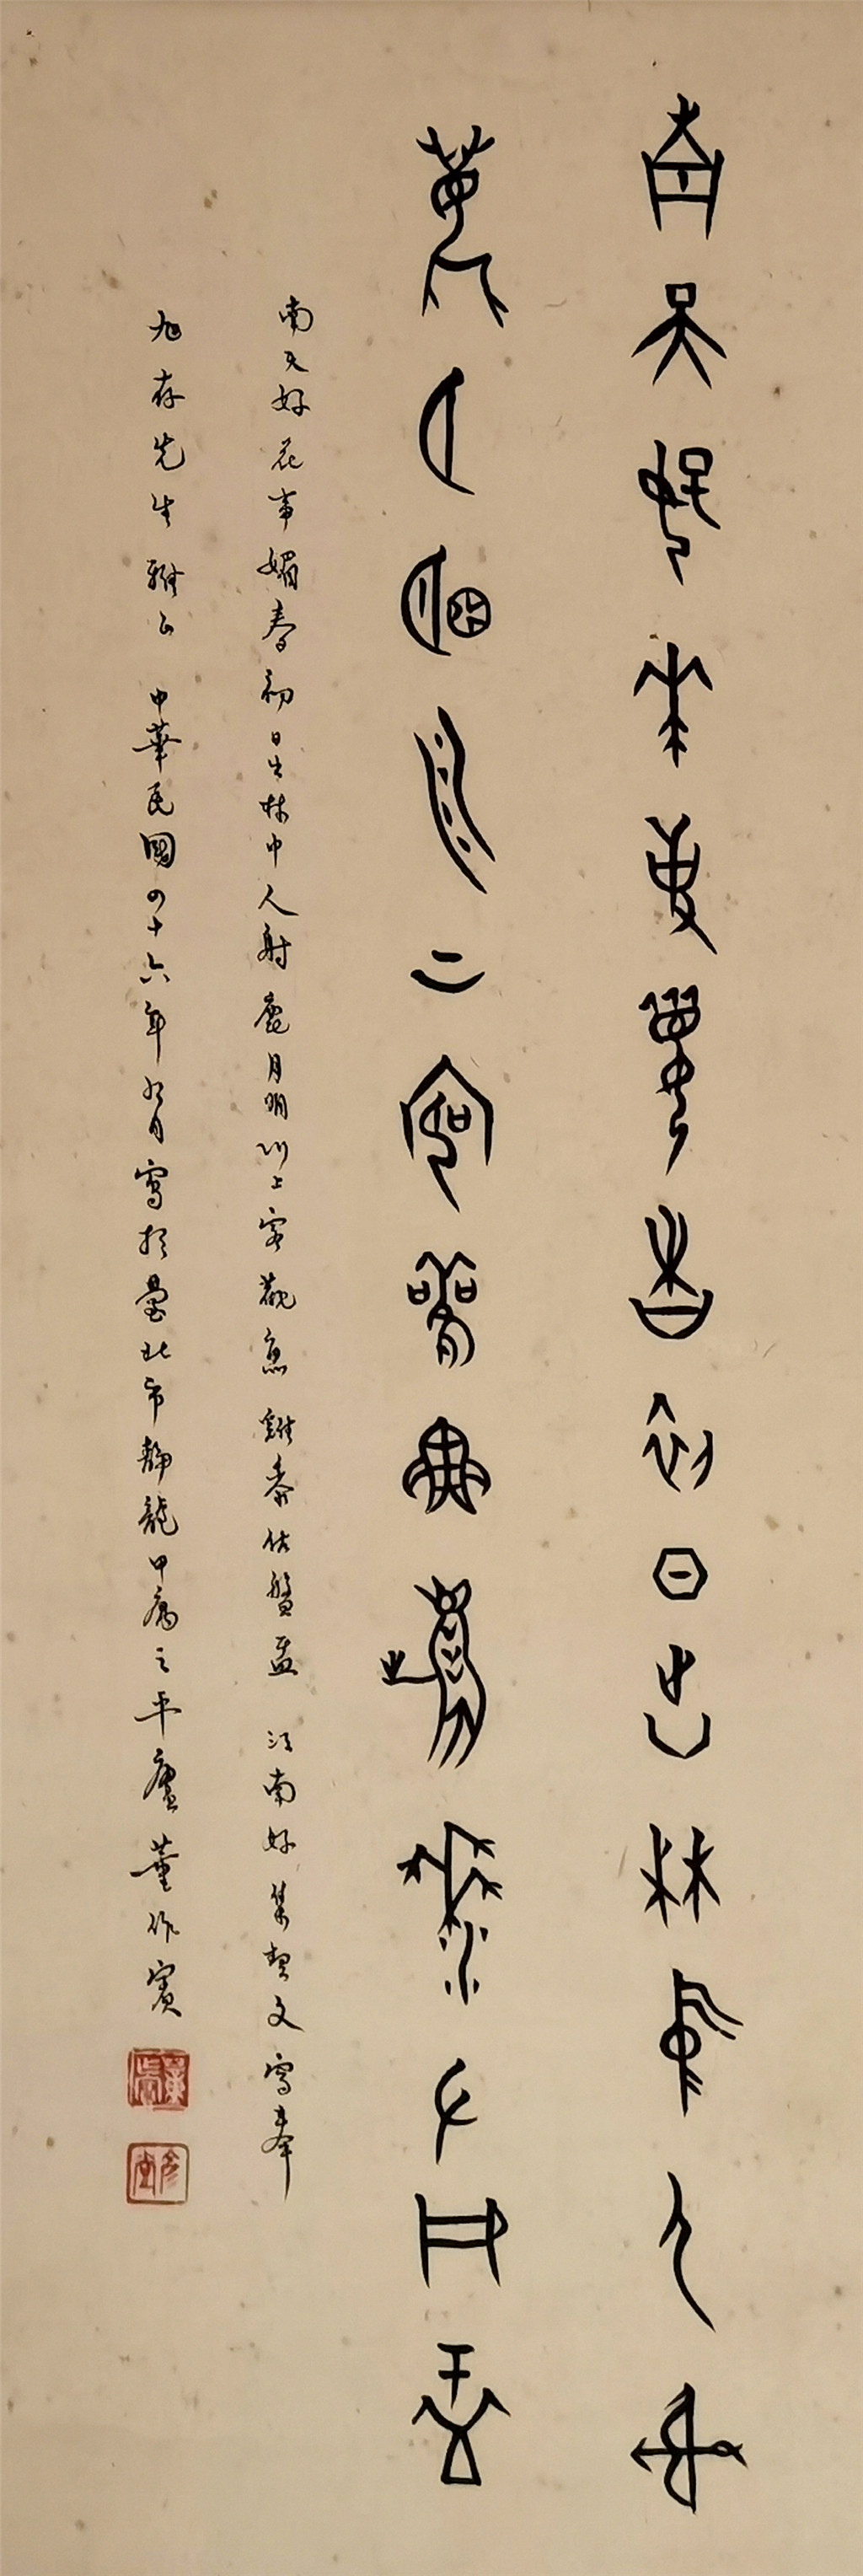 南天好花事媚春初日出林中人射
鹿月明川上客觀魚雞黍佐盤盂
南天好花事媚春初日出林中人射鹿月明川上客觀魚雞黍佐盤盂 江南好集契文寫奉
旭存先生雅正 中華民國四十六年九月寫於臺北市龍之平廬董作賓
彥堂